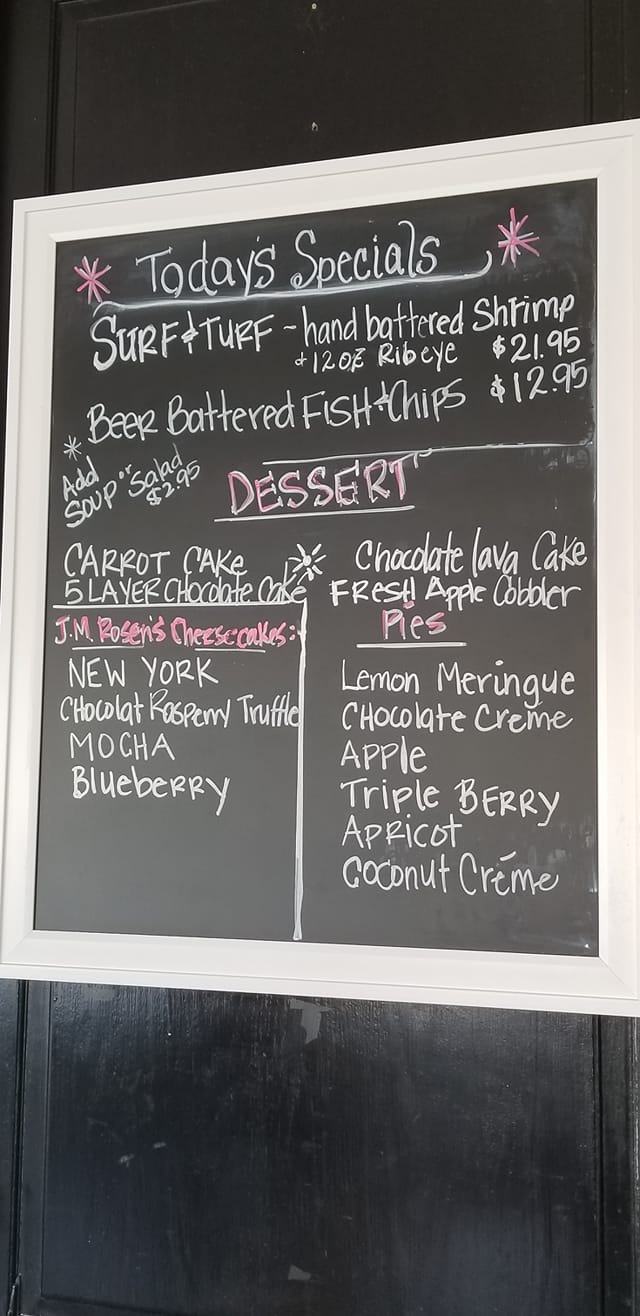 Today's Specials
SURF & TURF ~ hand battered Shrimp
+ 12oz Ribeye $21.95
Beer Battered FISH & Chips $12.95
* Add
SOUP or Salad
$2.95
DESSERT
CARROT CAKe
5 LAYER CHocolate Cake
J.M. Rosen's Cheesecakes:
NEW YORK
CHocolat Rasperry Truffle
MOCHA
BlueberRy
Chocolate lava Cake
FResH Apple Cobbler
Pies
Lemon Meringue
CHocolate Créme
APPle
Triple BERRY
APRicot
Coconut Créme